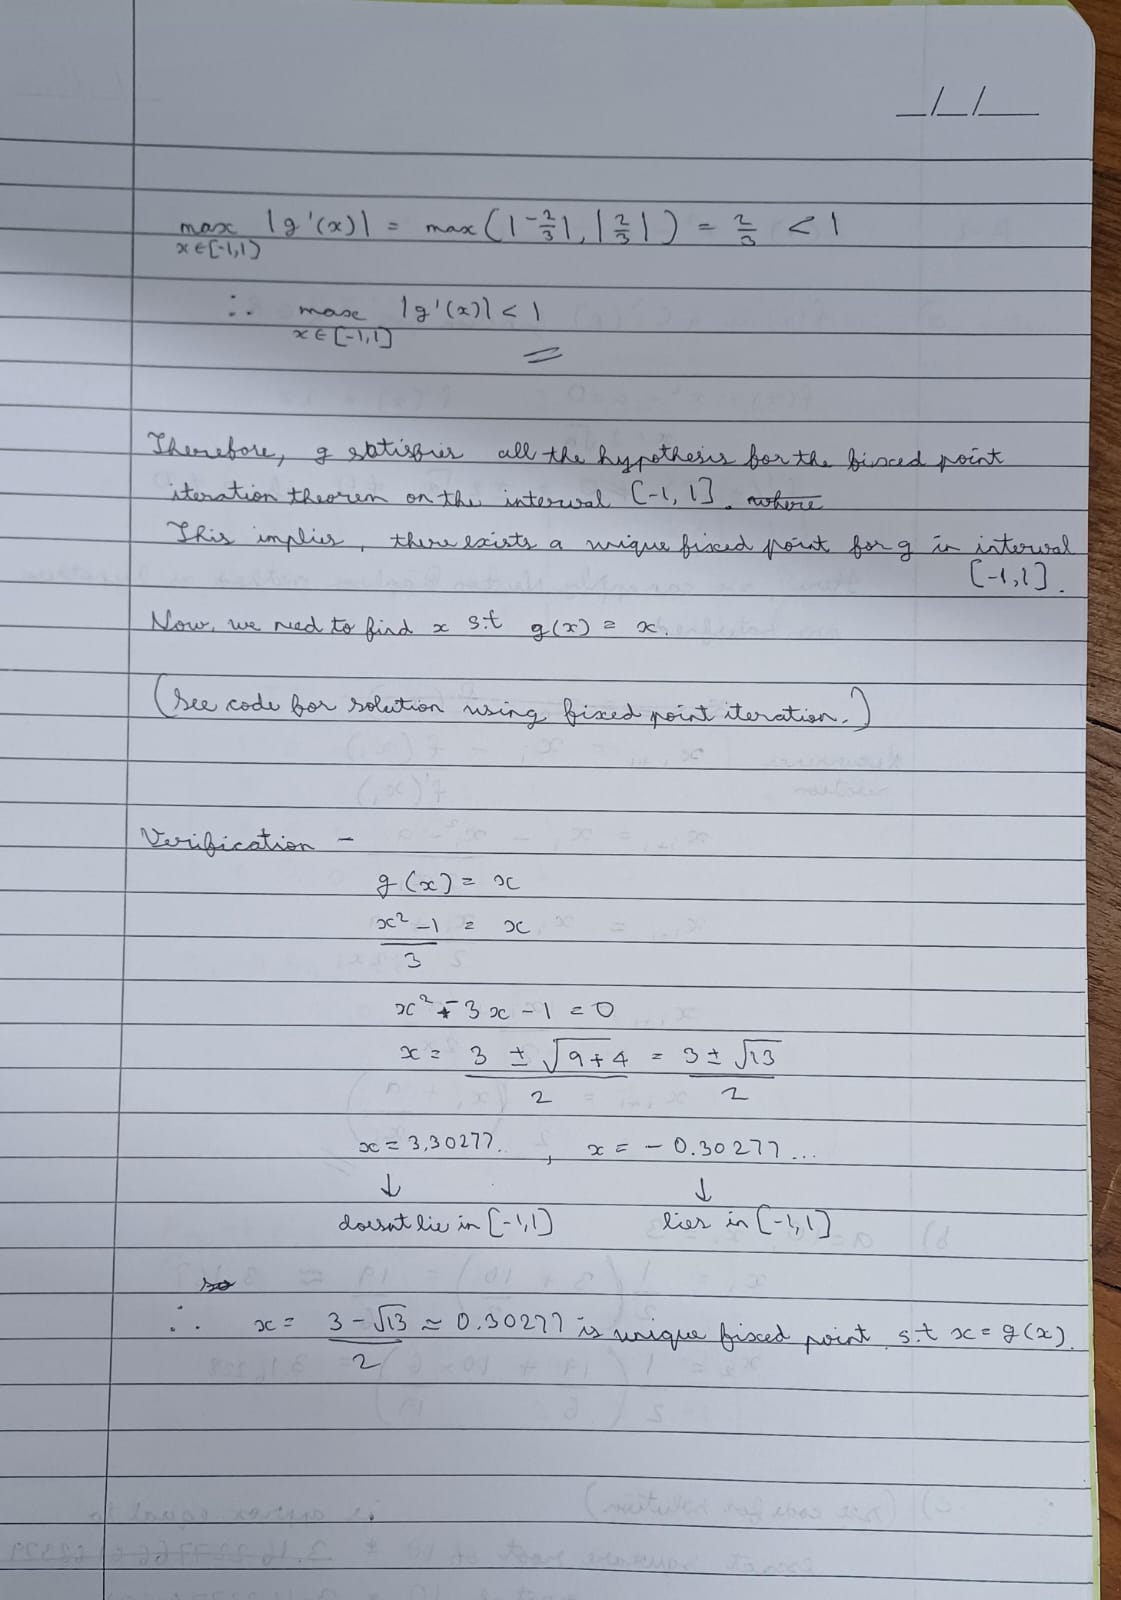 _/_/__
max |g'(x)| = max(|-2/3|, |2/3|) = 2/3 < 1
x∈[-1,1)
∴ max |g'(x)| < 1
x∈[-1,1]
Therefore, g satisfies all the hypothesis for the fixed point
iteration theorem on the interval [-1, 1]. where
This implies, there exists a unique fixed point for g in interval
[-1,1].
Now, we need to find x s.t g(x) = x.
(See code for solution using fixed point iteration.)
Verification -
g(x) = x
x² - 1 / 3 = x
x² - 3x - 1 = 0
x = 3 ± √9+4 / 2 = 3 ± √13 / 2
x = 3.30277.. , x = - 0.30277...
↓ ↓
doesnt lie in [-1,1) lies in [-1,1]
so
∴ x = 3 - √13 / 2 ≈ 0.30277 is unique fixed point s.t x = g(x).